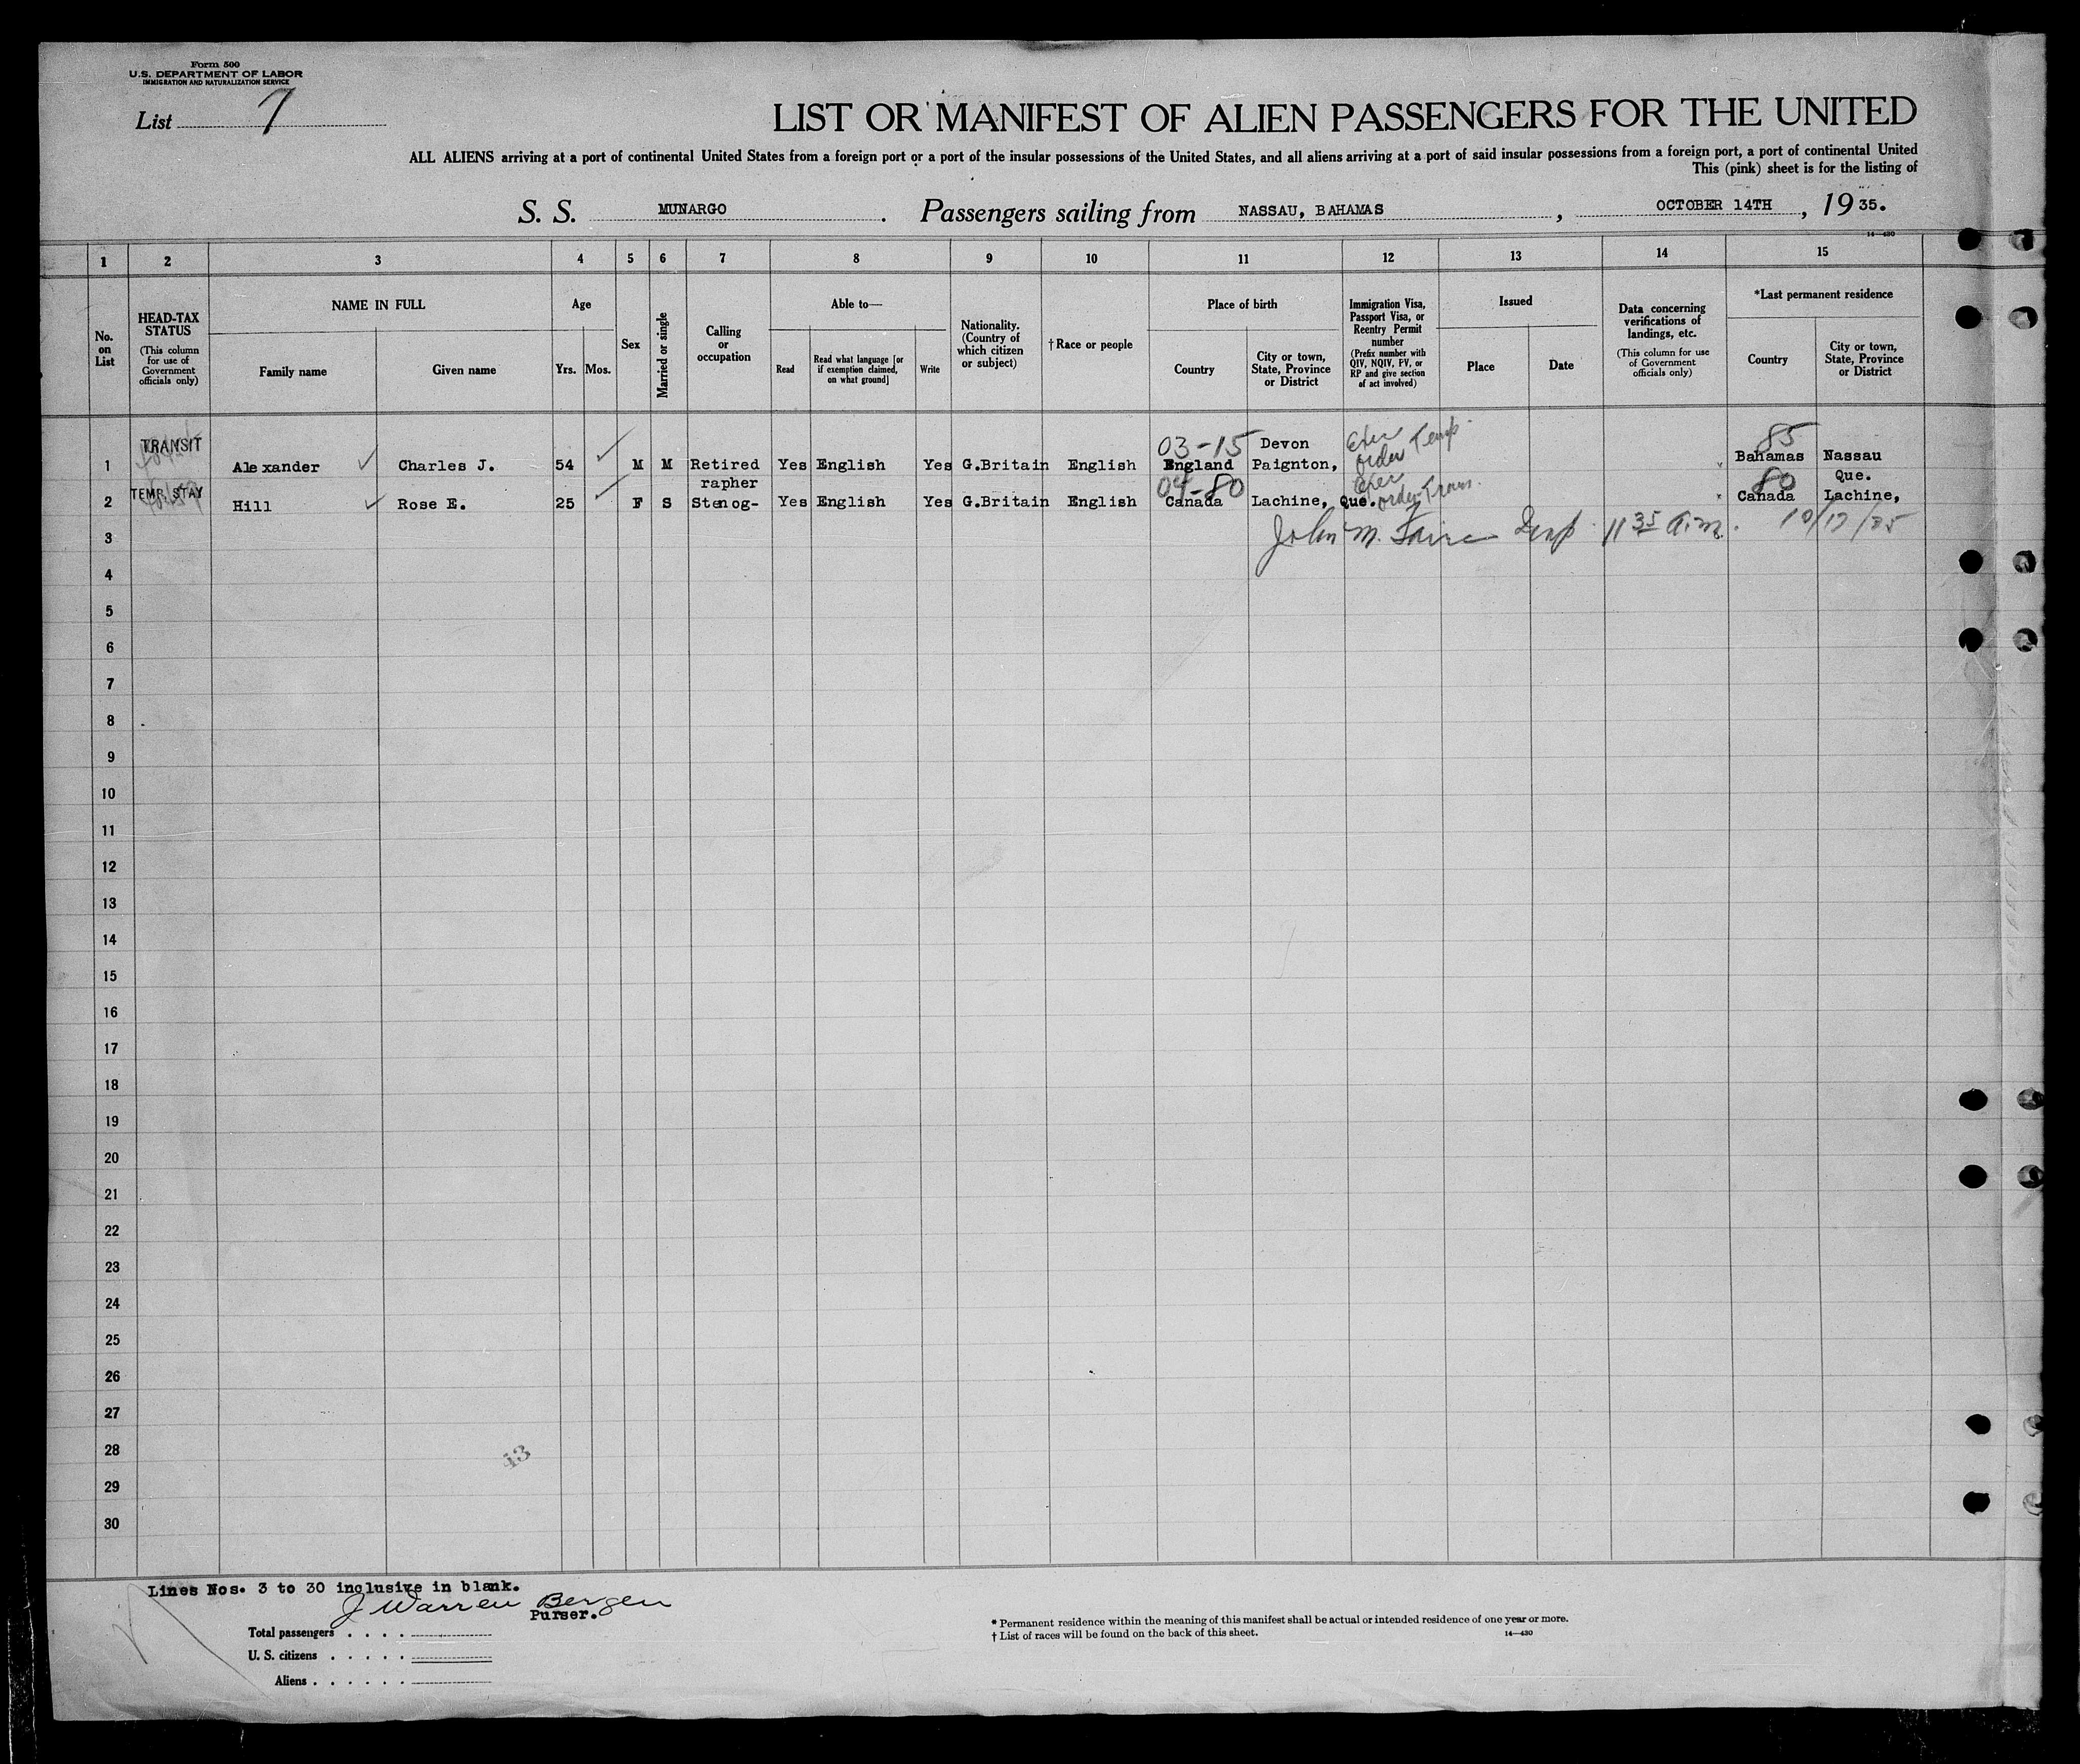 Form 500
U.S. DEPARTMENT OF LABOR
IMMIGRATION AND NATURALIZATION SERVICE
List 7
LIST OR MANIFEST OF ALIEN PASSENGERS FOR THE UNITED
ALL ALIENS arriving at a port of continental United States from a foreign port or a port of the insular possessions of the United States, and all aliens arriving at a port of said insular possessions from a foreign port, a port of continental United
This (pink) sheet is for the listing of
S. S. MUNARGO. Passengers sailing from NASSAU, BAHAMAS, OCTOBER 14TH, 1935.
14—430
1 2 3 4 5 6 7 8 9 10 11 12 13 14 15
No. on List
HEAD-TAX STATUS (This column for use of Government officials only)
NAME IN FULL
Family name
Given name
Age
Yrs. Mos.
Sex
Married or single
Calling or occupation
Able to—
Read
Read what language [or if exemption claimed, on what ground]
Write
Nationality. (Country of which citizen or subject)
†Race or people
Place of birth
Country
City or town, State, Province or District
Immigration Visa, Passport Visa, or Reentry Permit number (Prefix number with QIV, NQIV, PV, or RP and give section of act involved)
Issued
Place
Date
Data concerning verifications of landings, etc. (This column for use of Government officials only)
*Last permanent residence
Country
City or town, State, Province or District
TRANSIT 03-15 Devon 85
1 Alexander ✓ Charles J. 54 ✓ M M Retired Yes English Yes G.Britain English England Paignton, order Temp. Bahamas Nassau
TEMP. STAY rapher 04-80 80 Que.
2 Hill ✓ Rose E. 25 ✓ F S Stenog- Yes English Yes G.Britain English Canada Lachine, Que. order Trans. Canada Lachine,
3 John M. Insp 11 35 a.m. 10/17/35
4
5
6
7
8
9
10
11
12
13
14
15
16
17
18
19
20
21
22
23
24
25
26
27
28
29
30
43
Lines Nos. 3 to 30 inclusive in blank.
J Warren Bergen
Purser.
Total passengers . . . .
U. S. citizens . . . . .
Aliens . . . . . .
* Permanent residence within the meaning of this manifest shall be actual or intended residence of one year or more.
† List of races will be found on the back of this sheet.
14—430